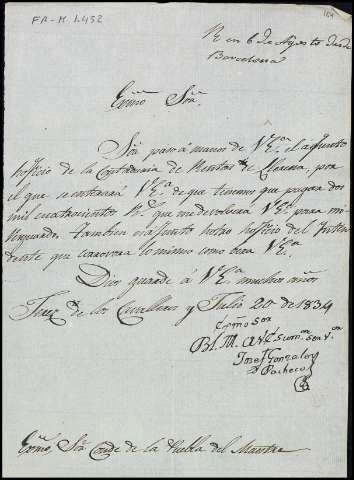 FR-M 1.452
R en 6 de Agosto desde
Barcelona
Exmo Sor
Sor paso á manos de V Ea el adjunto
hofficio de la Contaduria de Rentas de Llerena, por
el que se enterará V Ea de que tenemos que pagar dos
mil cuatrocientos Rs que me debolverá V Ea para mi
Resguardo tambien esajunto hotro hofficio del Inten
dente que
lo mismo como bera V Ea
Dios guarde á V Ea muchos años
Jerez de los Cavalleros y Julio 20 de 1834
Exmo Sor
B. L. M. a V E
Josef Gonzalez
Pacheco
Exmo Sor Conde de la Puebla del Maestre